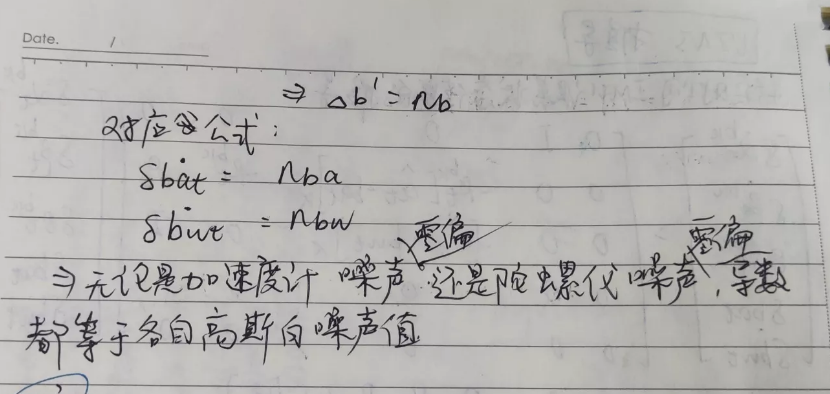 Date. /
⇒ Δb' = nb
对应公式:
δḃat = nba
δḃwt = nbw
⇒ 无论是加速度计零偏噪声还是陀螺仪零偏噪声,导数
都等于各自高斯白噪声值